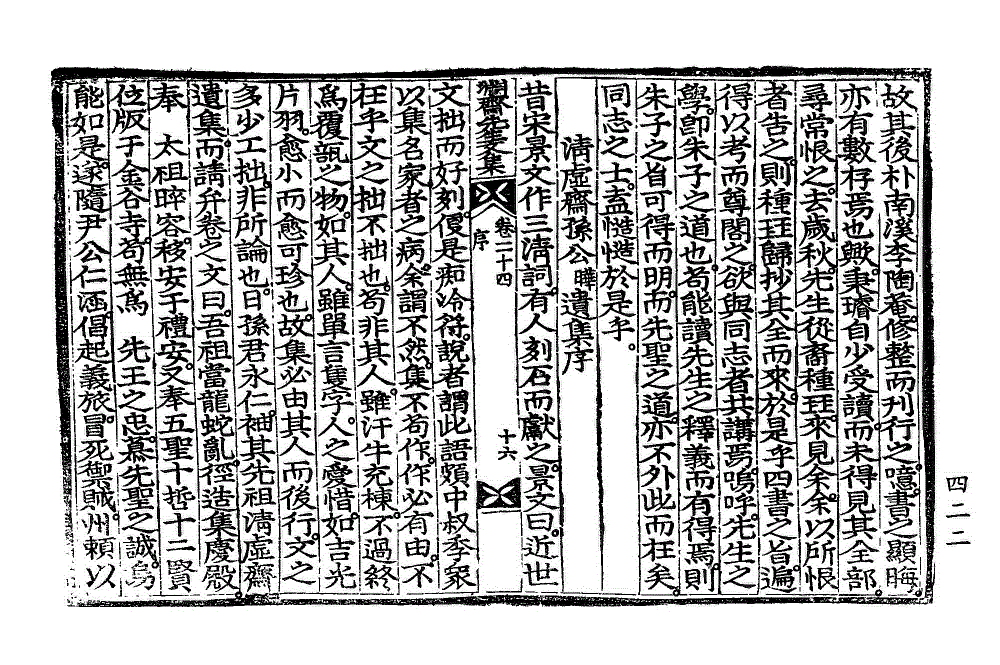 故其後朴南溪李陶菴。修整而刊行之。噫。書之顯晦。
亦有數存焉也歟。秉璿自少受讀。而未得見其全部。
尋常恨之。去歲秋。先生從裔種玨來見余。余以所恨
者告之。則種玨歸抄其全而來。於是乎四書之旨。遍
得以考而尊閣之。欲與同志者共講焉。嗚呼。先生之
學。卽朱子之道也。苟能讀先生之釋義而有得焉。則
朱子之旨可得而明。而先聖之道。亦不外此而在矣。
同志之士。盍慥慥於是乎。
淸虛齋孫公 曄 遺集序
昔宋景文作三淸詞。有人刻石而獻之。景文曰。近世
淵齋先生文集 卷二十四 序 十六
文拙而好刻。便是痴冷符。說者謂此語頗中叔季衆
以集名家者之病。余謂不然。集不苟作。作必有由。不
在乎文之拙不拙也。苟非其人。雖汗牛充棟。不過終
爲覆瓿之物。如其人。雖單言隻字。人之愛惜。如吉光
片羽。愈小而愈可珍也。故集必由其人而後行。文之
多少工拙。非所論也。日。孫君永仁。袖其先祖淸虛齋
遺集。而請弁卷之文曰。吾祖當龍蛇亂。徑造集慶殿
奉 太祖晬容。移安于禮安。又奉五聖十哲十二賢
位版于金谷寺。苟無爲 先王之忠。慕先聖之誠。曷
能如是。遂隨尹公仁涵。倡起義旅。冒死禦賊。州賴以
四二二